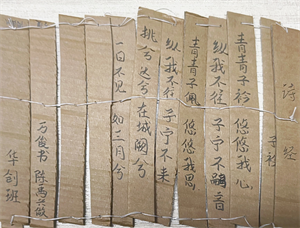 诗经
子衿
青青子衿 悠悠我心
纵我不往 子宁不嗣音
青青子佩 悠悠我思
纵我不往 子宁不来
挑兮达兮 在城阙兮
一日不见 如三月兮
万俊书 陈禹
华创班